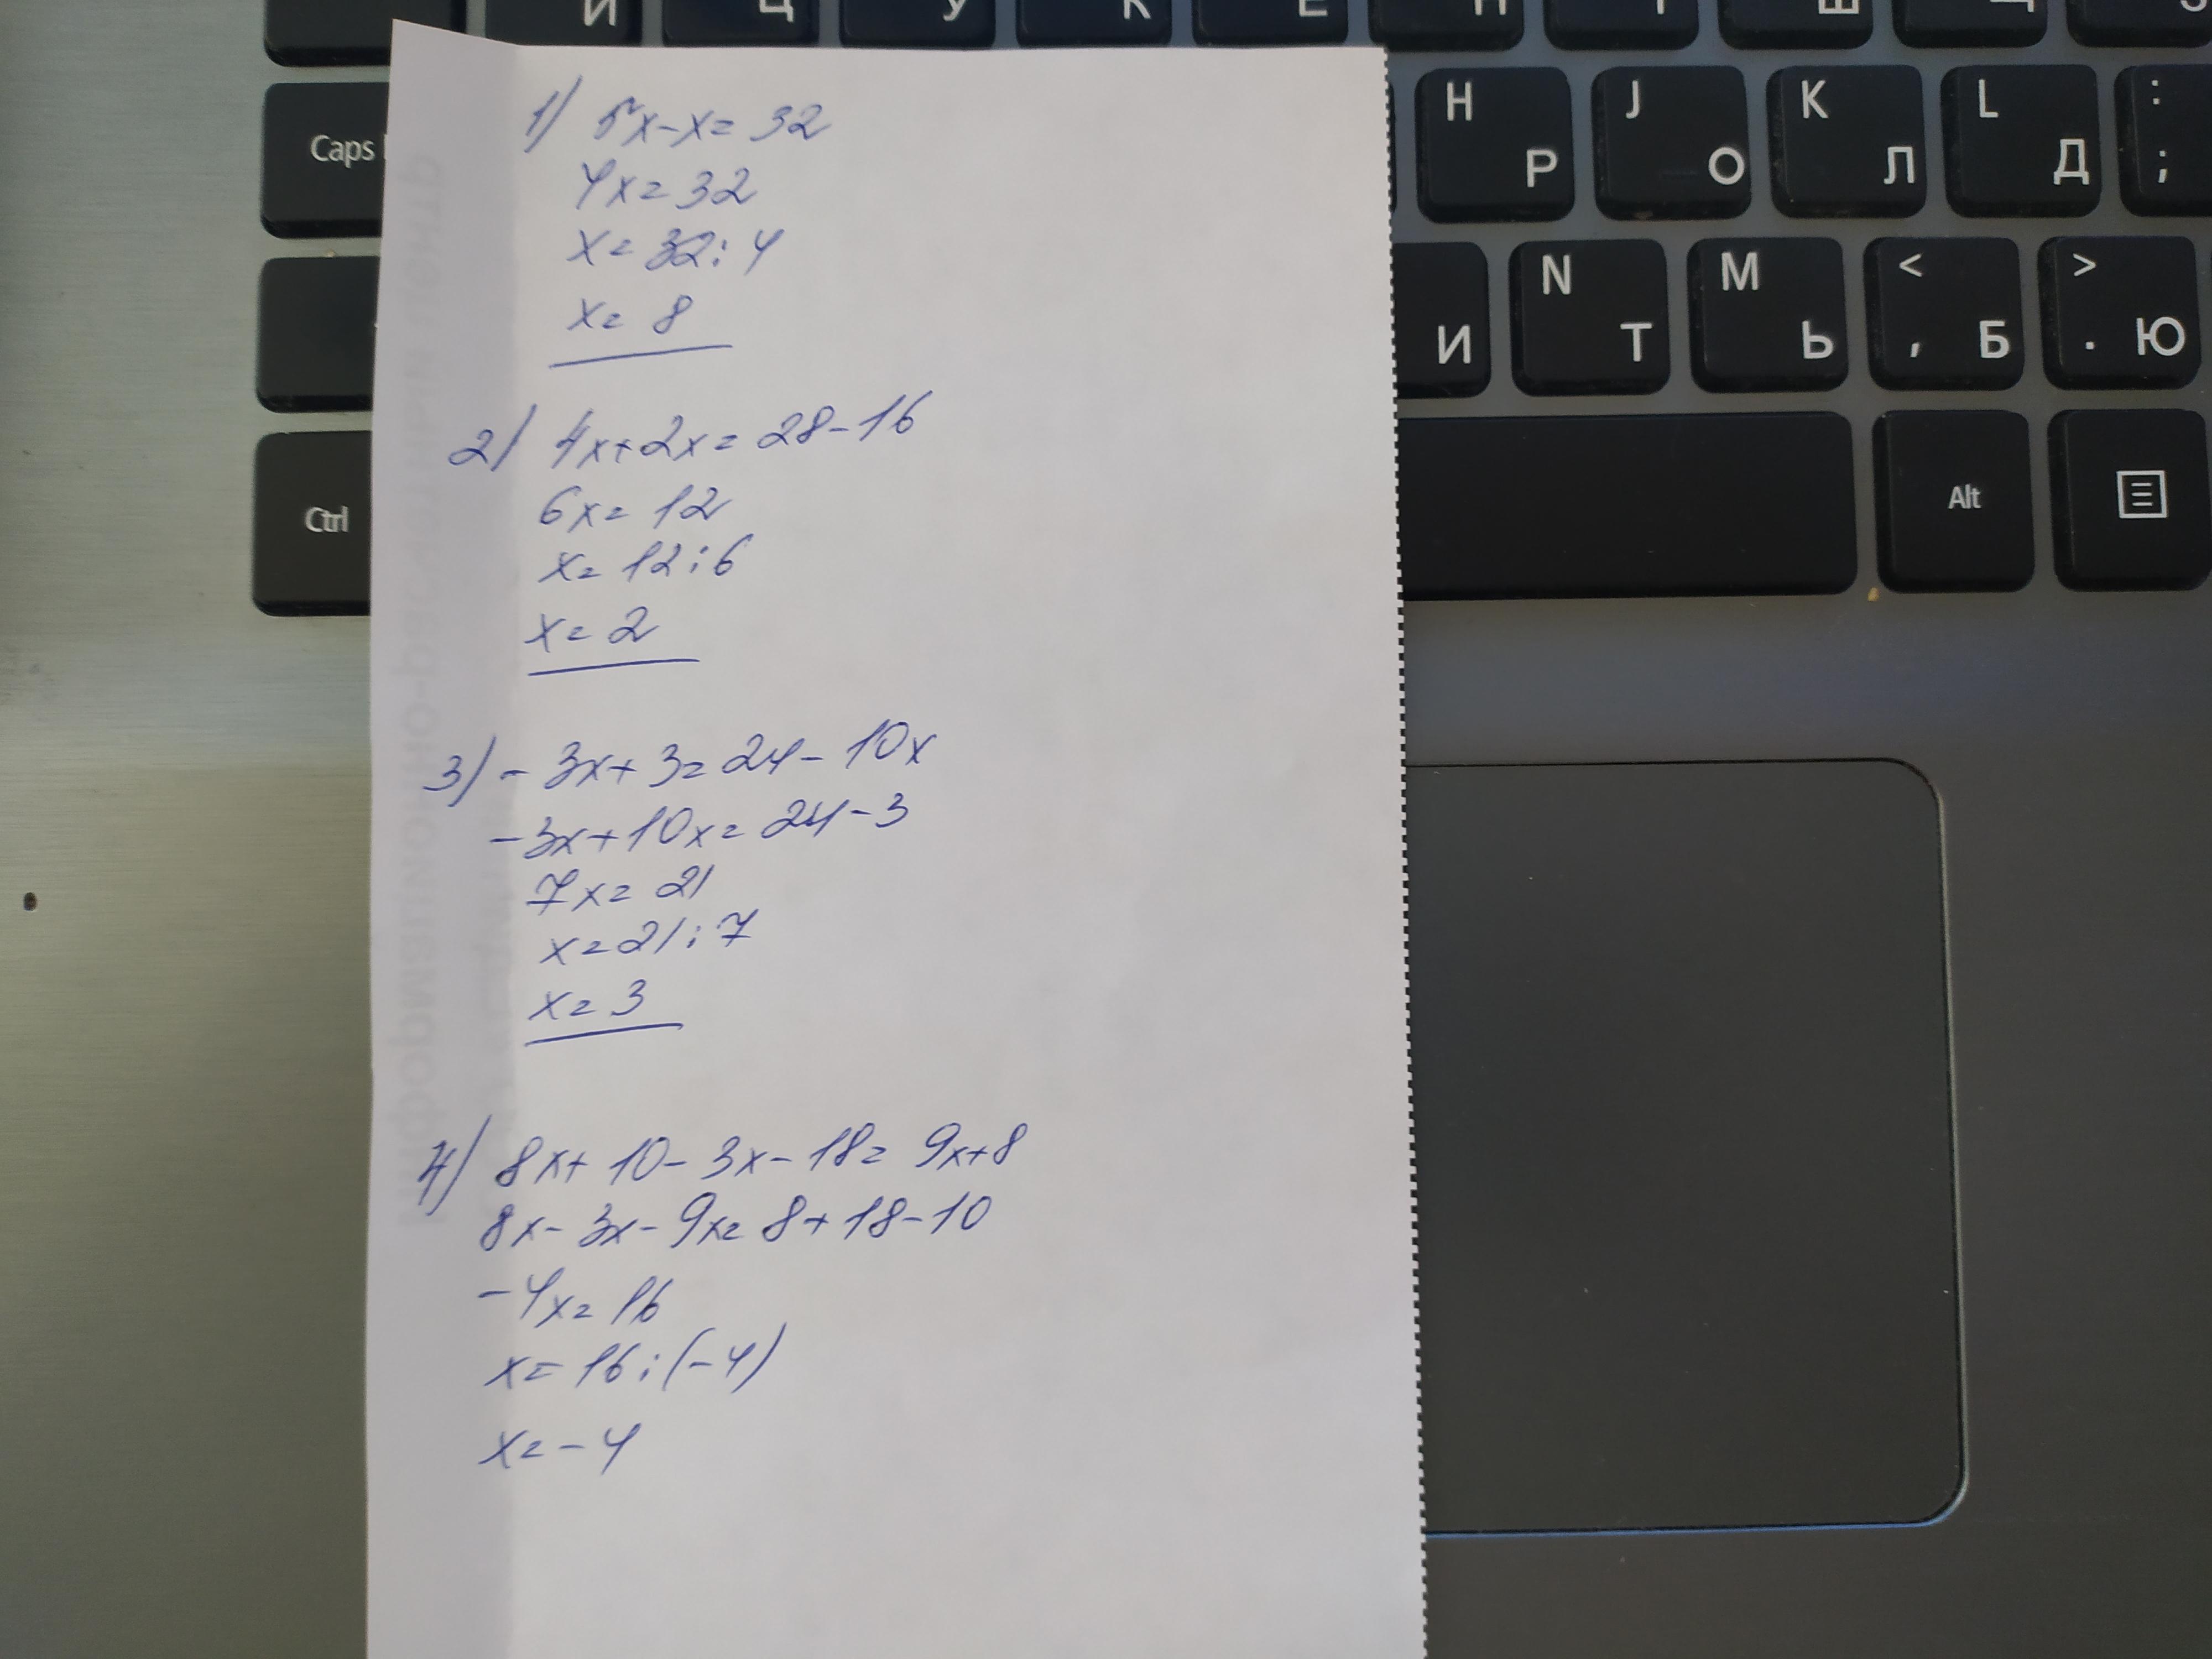 И Ц У К Е Н Г Ш Щ З
Caps H Р J О K Л L Д : ;
И N Т M Ь < , Б > . Ю
Ctrl Alt
1) 5x-x= 32
4x= 32
x= 32:4
x= 8
2) 4x+2x= 28-16
6x= 12
x= 12:6
x= 2
3) - 3x+ 3= 24- 10x
-3x+10x= 24-3
7x= 21
x= 21:7
x= 3
4) 8x+ 10- 3x- 18= 9x+8
8x- 3x- 9x= 8+ 18-10
-4x= 16
x= 16:(-4)
x= -4
информационно-